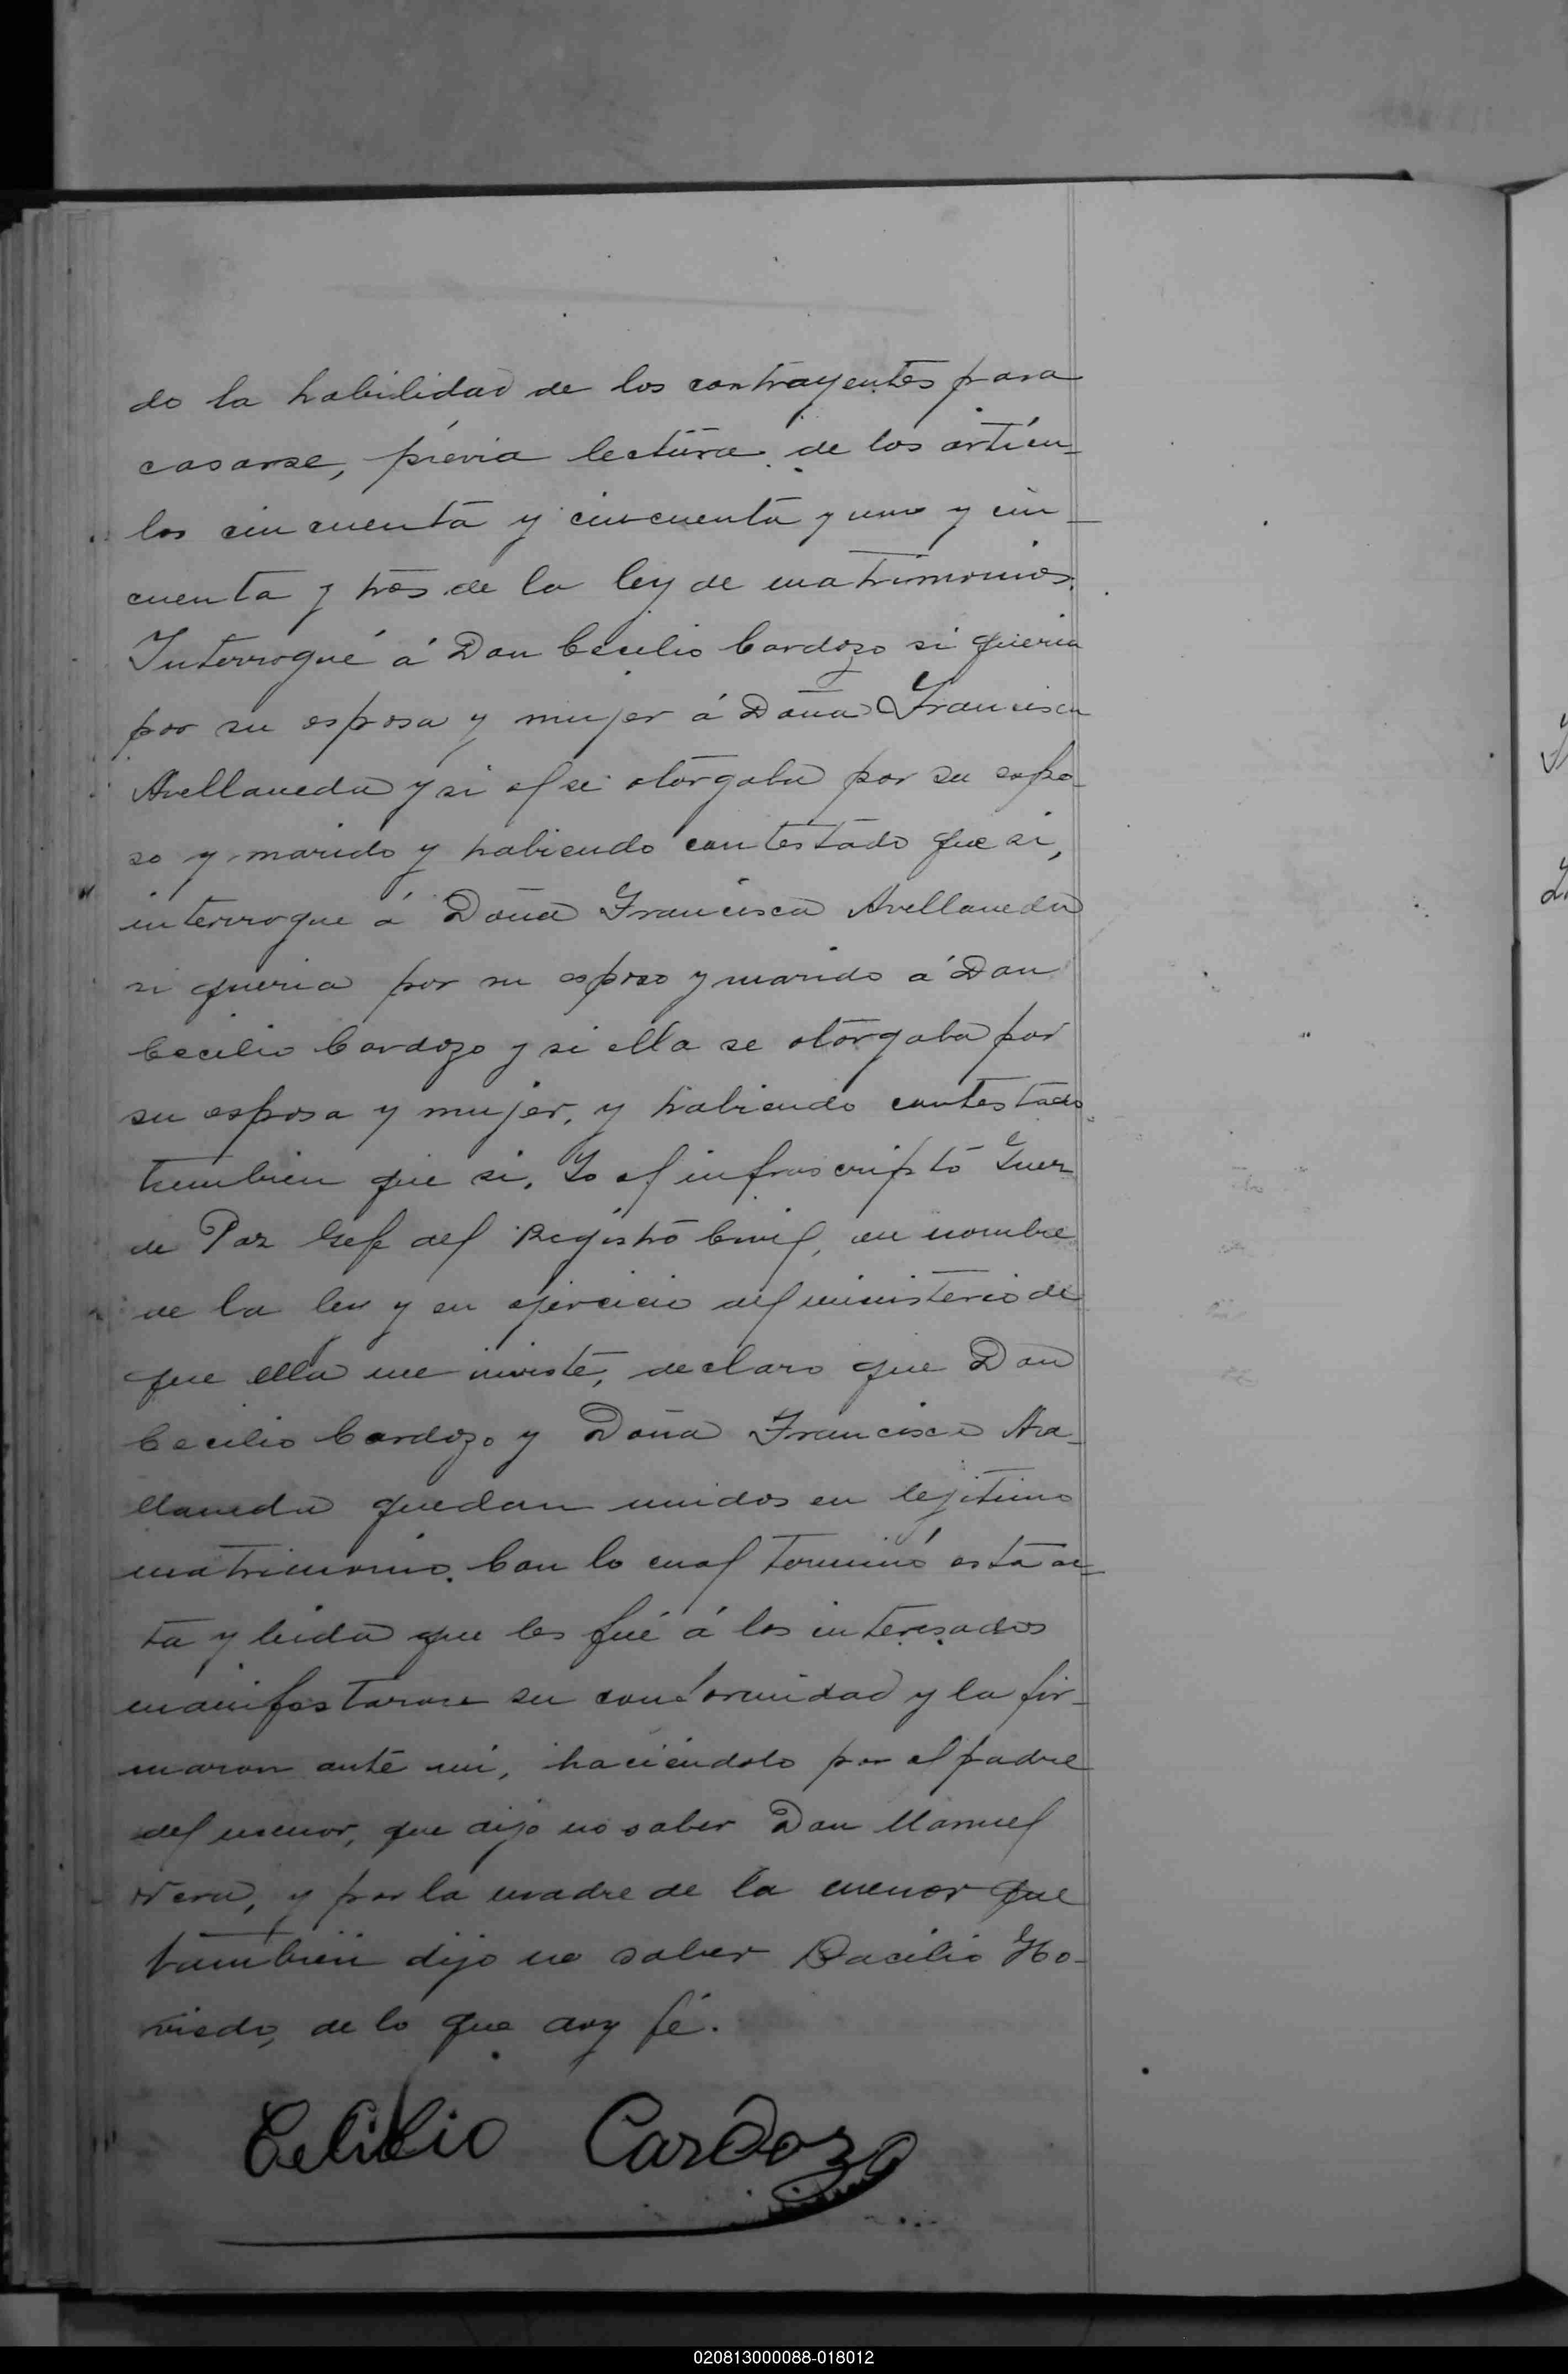 do la habilidad de los contrayentes para
casarse, prévia lectura de los artícu-
los cincuenta y cincuenta y uno y cin-
cuenta y tres de la ley de matrimonios.
Interrogué á Don Cecilio Cardozo si queria
por su esposa y mujer á Doña Francisca
Avellaneda y si el se otorgaba por su espo-
so y marido y habiendo contestado que si,
interrogue á Doña Francisca Avellaneda
si queria por su esposo y marido á Don
Cecilio Cardozo y si ella se otorgaba por
su esposa y mujer, y habiendo contestado
tambien que si, Yo el infrascripto Juez
de Paz Gefe del Registro Civil, en nombre
de la ley y en ejercicio del ministerio de
que ella me inviste, declaro que Don
Cecilio Cardozo y Doña Francisca Ava-
llaneda quedan unidos en lejitimo
matrimonio. Con lo cual terminó esta ac-
ta y leida que les fué á los interesados
manifestaron su conformidad y la fir-
maron ante mi, haciéndolo por el padre
del menor, que dijo no saber Don Manuel
Vera, y por la madre de la menor que
tambien dijo no saber Bacilio Ho-
viedo, de lo que doy fé.
Celilio Cardozo
020813000088-018012